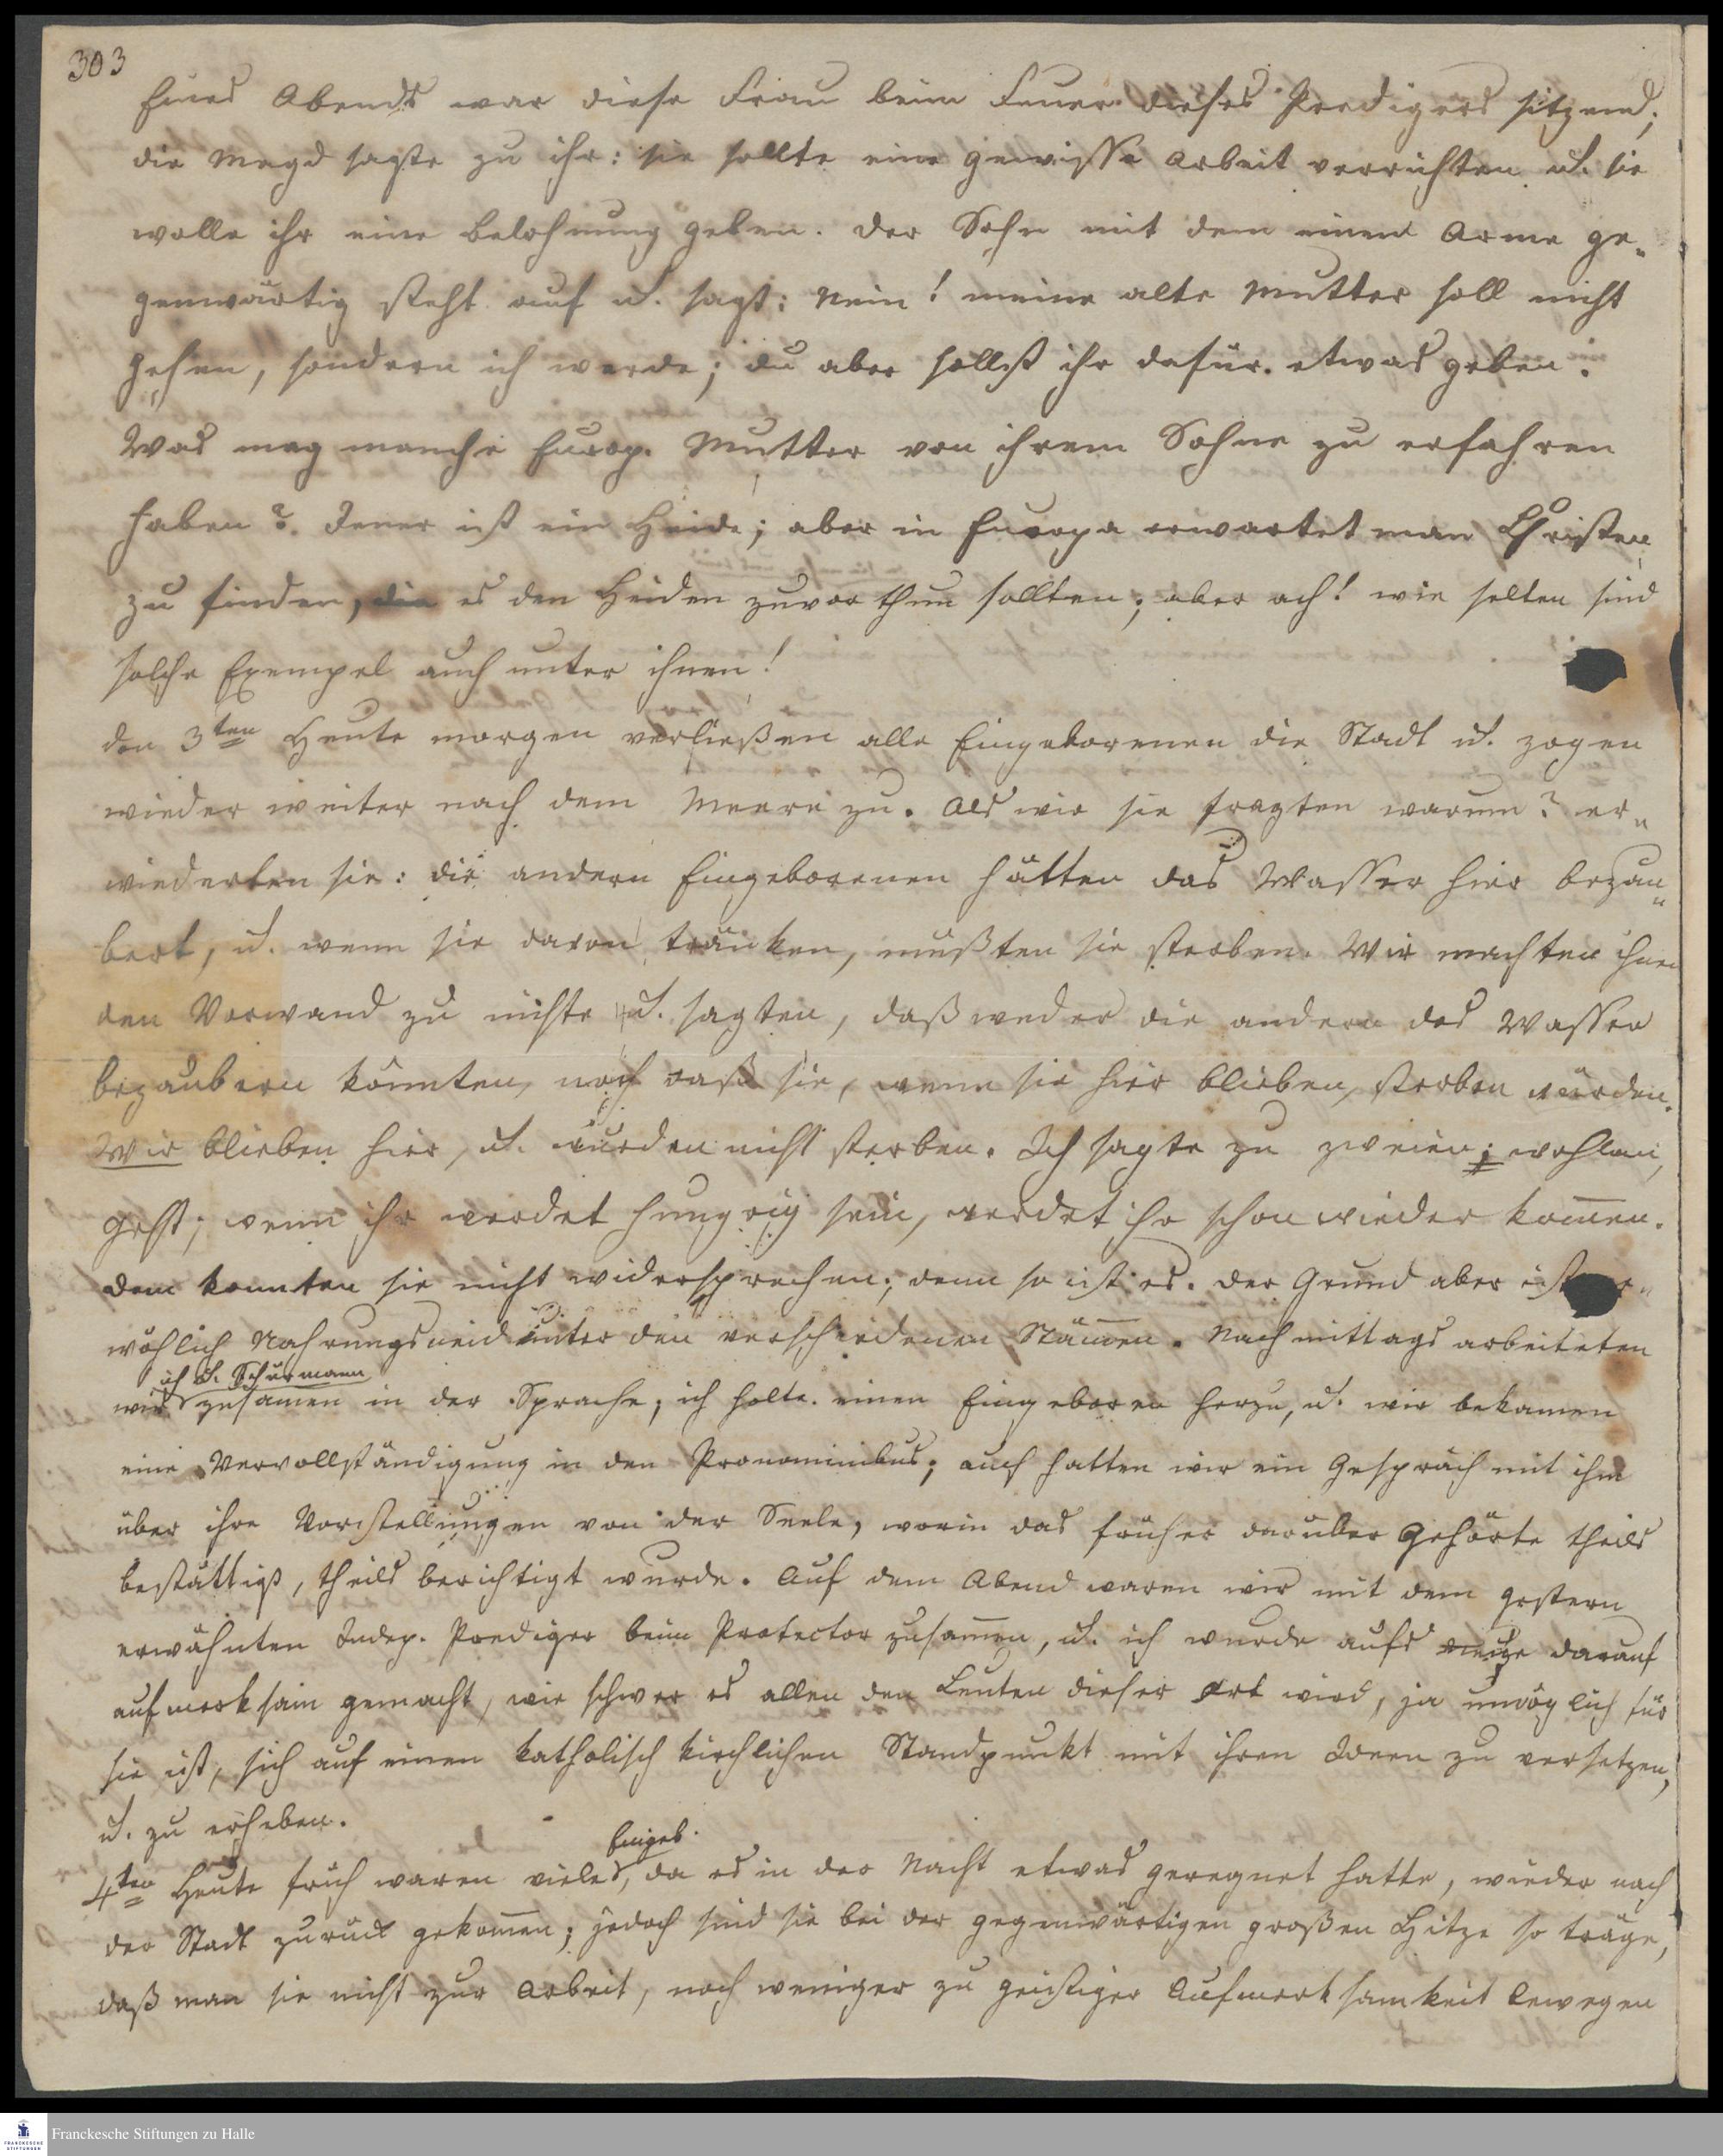 303
Eines Abends war diese Frau beim Feuer dieses Predigers sitzend;
die Magd sagte zu ihr: sie sollte eine gewisse Arbeit verrichten u. sie
wolle ihr eine Belohnung geben. Der Sohn mit dem einen Arme ge-
genwärtig steht auf u. sagt: Nein! meine alte Mutter soll nicht
gehen, sondern ich werde; du aber sollst ihr dafür etwas geben.
Was mag manche Europ. Mutter von ihrem Sohne zu erfahren
haben? Jener ist ein Heide; aber in Europa erwartet man Christen
zu finden, die es den Heiden zuvor thun sollten; aber ach! wie selten sind
solche Exempel auch unter ihnen!
den 3ten Heute morgen verließen alle Eingeborenen die Stadt u. zogen
wieder weiter nach dem Meere zu. Als wir sie fragten warum? er-
wiederten sie: die andern Eingeborenen hätten das Wasser hier bezau-
bert, u. wenn sie davon tränken, müßten sie sterben. Wir machten ihnen
den Vorwand zu nichte u. sagten, daß weder die andern das Wasser
bezaubern könnten, noch daß sie, wenn sie hier blieben, sterben würden.
Wir blieben hier, u. würden nicht sterben. Ich sagte zu zweien; wohlan,
geht; wenn ihr werdet hungrig sein, werdet ihr schon wieder kom̄en.
Dem konnten sie nicht widersprechen; denn so ist es. Der Grund aber ist
wöhlich Nahrungsneid unter den verschiedenen Stäm̄en. Nachmittags arbeiteten
ich u. Schürmann
wir zusamen in der Sprache; ich holte einen Eingeboren herzu, u. wir bekamen
eine Vervollständigung in den Pronominibus; auch hatten wir ein Gespräch mit ihm
über ihre Vorstellungen von der Seele, worin das früher darüber Gehörte theils
bestättigt, theils berichtigt wurde. Auf dem Abend waren wir mit dem gestern
erwähnten Indep. Prediger beim Protector zusam̄en, u. ich wurde aufs neue darauf
aufmerksam gemacht, wie schwer es allen den Leuten dieser Art wird, ja unmöglich für
sie ist, sich auf einen katholisch kirchlichen Standpunkt mit ihren Ideen zu versetzen,
u. zu erheben.
Eingeb.
4ten Heute früh waren viele, da es in der Nacht etwas geregnet hatte, wieder nach
der Stadt zurück gekom̄en; jedoch sind sie bei der gegenwärtigen großen Hitze so träge,
daß man sie nicht zur Arbeit, noch weniger zu geistiger Aufmerksamkeit bewegen
Franckesche Stiftungen zu Halle